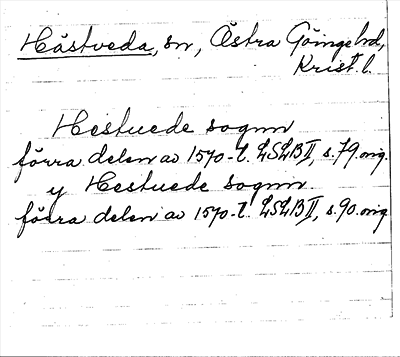 Hästveda, sn, Östra Göinge hd,
Krist. l.
Hestuede sognn
förra delen av 1570-t. LSLB II, s. 79. orig.
y Hestuede sognn.
förra delen av 1570-t. LSLB II, s. 90. orig